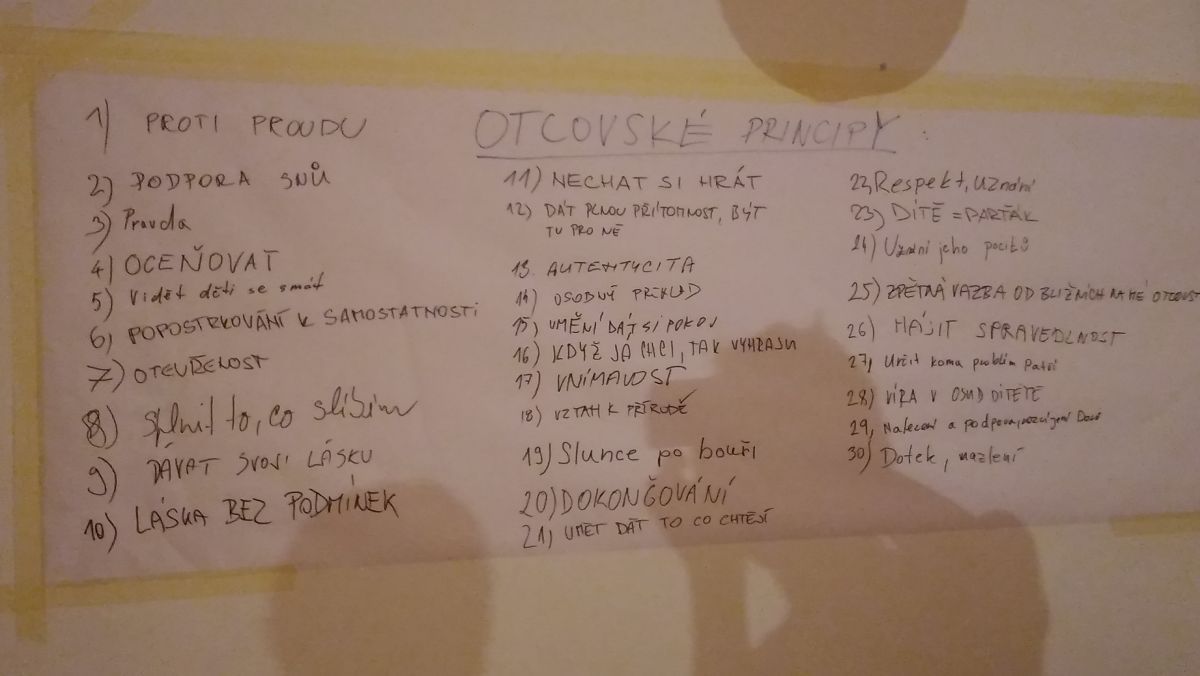 OTCOVSKÉ PRINCIPY
1) PROTI PROUDU
2) PODPORA SNŮ
3) Pravda
4) OCEŇOVAT
5) Vidět děti se smát
6, POPOSTRKOVÁNÍ K SAMOSTATNOSTI
7) OTEVŘENOST
8) splnit to, co slíbím
9) DÁVAT SVOJI LÁSKU
10) LÁSKA BEZ PODMÍNEK
11) NECHAT SI HRÁT
12) DÁT PLNOU PŘÍTOMNOST, BÝT
TU PRO NĚ
13. AUTENTYCITA
14) OSOBNÝ PŘÍKLAD
15, UMĚNÍ DÁT SI POKOJ
16) KDYŽ JÁ CHCI, TAK VYHRAJU
17) VNÍMAVOST
18) VZTAH K PŘÍRODĚ
19) Slunce po bouři
20) DOKONČOVÁNÍ
21, UMĚT DÁT TO CO CHTĚJÍ
22, Respekt, Uznání
23) DÍTĚ = PARŤÁK
24) Uznání jeho pocitů
25) ZPĚTNÁ VAZBA OD BLIŽNÍCH NA MÉ OTCOVST
26) HÁJIT SPRAVEDLNOST
27, Určit komu problém Patří
28) VÍRA V OSUD DÍTĚTE
29, a podpora,
30) Dotek, mazlení